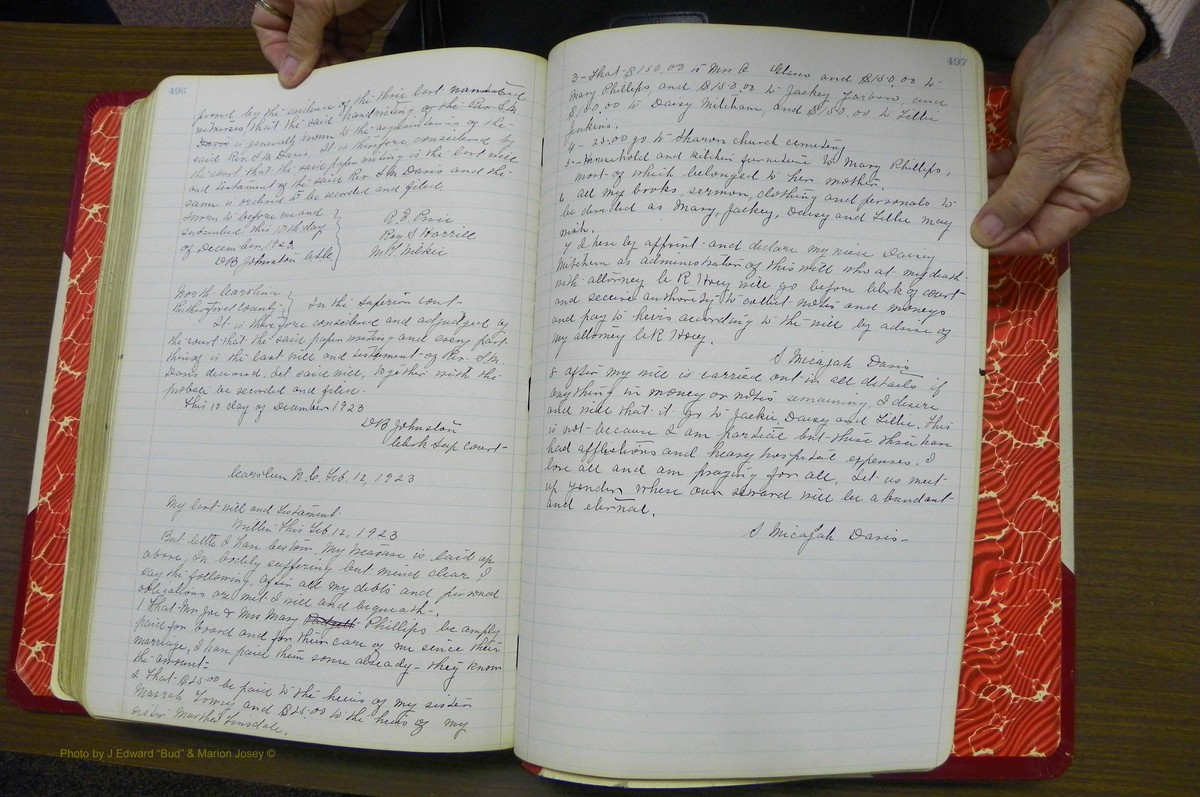 496
proved by the evidence of the three last named and
witnesses that the said handwriting of the Rev. S.M.
Davis is generally known to the acquaintances of the
said Rev. S.M. Davis. It is therefore considered by
the court that the said paper writing is the last will
and testament of the said Rev. S.M. Davis and the
same is ordered to be recorded and filed.
Sworn to before me and
subscribed this 10th day
of December, 1923.
D B Johnston Clk.
R. E. Price
Roy S Harrill
M. H. Wilkie
North Carolina
Rutherford County
In the Superior court
It is therefore considered and adjudged by
the court that the said paper writing and every part
thereof is the last will and testament of Rev. S.M.
Davis deceased. Let said will, together with the
probate be recorded and filed.
This 10 day of December 1923
D B Johnston
Clerk Sup court
Caroleen N.C. Feb. 12, 1923
My last will and testament.
Written this Feb 12, 1923
But little I have bestow, My treasure is laid up
above, In bodily suffering but mind clear I
say the following, after all my debts and personal
obligations are met I will and bequeath-.
1 That Mr Joe & Mrs Mary Phillips be amply
paid for board and for their care of me since their
marriage, I have paid them some already - they know
the amount-
2 That $25.00 be paid to the heirs of my sister
Towry and $25.00 to the heirs of my
sister Martha
497
3- That $150.00 to Mrs and $150.00 to
Mary Phillips, and $150.00 to Jackey and
$150.00 to Daisy Mitchem, and $150.00 to Lillie
Jenkins.
4- 25.00 go to Sharon church cemetery
5- Household and kitchen furniture to Mary Phillips,
most of which belonged to her mother.
6 all my books, sermon, clothing and personals to
be divided as Mary, Jackey, Daisy and Lillie may
wish.
7 I hereby appoint and declare my niece Daisy
Mitchem as administration of this will who at my death
with attorney C.R Hoey will go before clerk of court
and secure authority to collect notes and moneys
and pay to heirs according to the will by advise of
my attorney C.R. Hoey.
S Micajah Davis
8 after my will is carried out in all details if
anything in money or notes remaining, I desire
and will that it go to Jackie, Daisy and Lillie. This
is not because I am partial but these three have
had afflictions and heavy hospital expenses. I
love all and am praying for all, Let us meet
up yonder where our reward will be abundant
and eternal.
S Micajah Davis-
Photo by J Edward "Bud" & Marion Josey ©